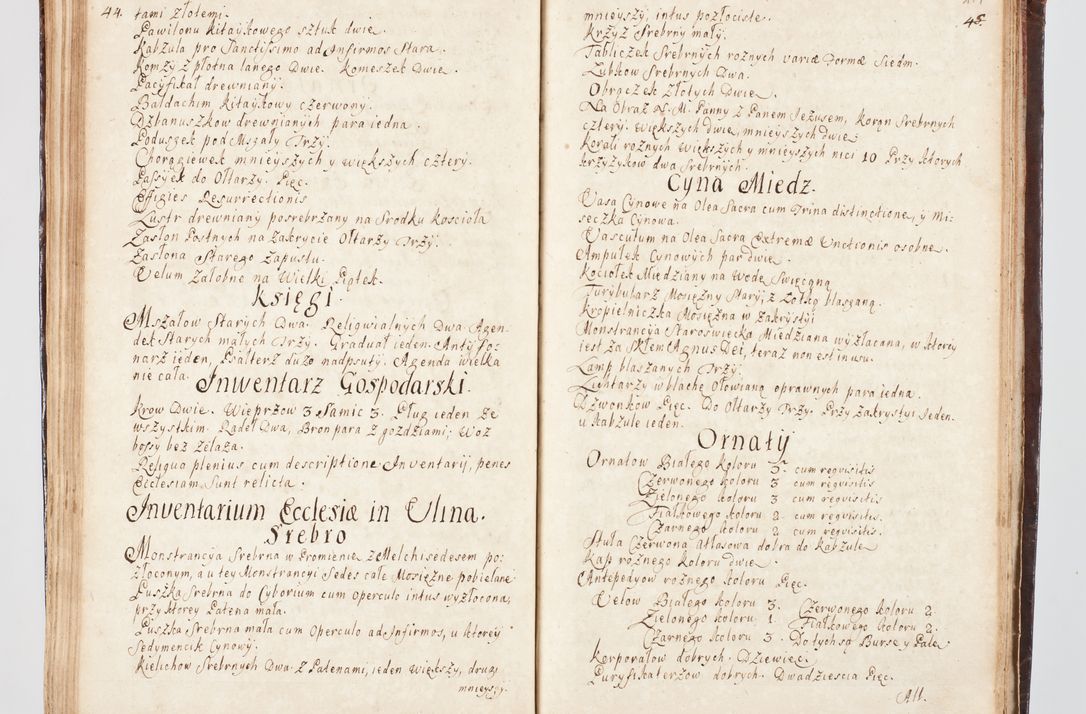 44. tami złotemi.
Pawilonu kitaykowego sztuk dwie.
Kabzula pro Sanctissimo ad Infirmos stara.
Komży z płotna lanego Dwie. Komeszek Dwie.
Pacyfikał drewniany.
Baldachim kitaykowy czerwony.
Dzbanuszkow drewnianych para iedna.
Poduszek pod Mszały Trzy.
Chorągiewek mnieyszych y większych cztery.
Passyek do Ołtarzy. Pięc.
Effigies Resurrectionis
Lustr drewniany posrebrzany na srodku kosciola
Zasłon Postnych na Zakrycie Ołtarzy Trzy.
Zasłona Starego Zapustu.
Velum Załobne na Wielki Piątek.
Księgi.
Mszałow Starych Dwa. Religwialnych Dwa. Agen-
dek Starych małych Trzy. Graduał ieden. Antyfo-
narz ieden, Psałterz duzo nadpsuty. Agenda wielka
nie cała.
Inwentarz Gospodarski.
Krow Dwie. Wieprzow 3 Samic 3. Pług ieden ze
wszystkim. Radeł Dwa, Bron para z gozdziami; Woz
bossy bez żelaza.
Reliqua plenius cum descriptione Inventarij, penes
Ecclesiam sunt relicta.
Inventarium Ecclesiæ in Ulina.
Srebro
Monstrancya srebrna w Promienie z Melchisedesem po-
złoconym, a u tey Monstrancyi Sedes cale Mosiężne pobielane
Puszka srebrna do Cyborium cum operculo intus wyzłocona,
przy ktorey Patena mała.
Puszka srebrna mała cum operculo ad Infirmos, u ktorey
Sedymencik Cynowy.
Kielichow srebrnych Dwa z Patenami, ieden większy, drugi
mnieyszy.
45.
mnieyszy, intus pozłociste.
Krzyż srebrny mały.
Tabliczek srebrnych roznych variæ formæ Siedm.
Ząbkow srebrnych Dwa.
Obrączek złotych Dwie.
Na Obraz N. M. Panny z Panem Jezusem, koron srebrnych
cztery. większych dwie, mnieyszych dwie.
Korali roznych większych y mnieyszych nici 10 Przy ktorych
krzyżykow dwa srebrnych.
Cyna Miedz.
Vasa Cynowe na Olea Sacra cum trina distinctione, y Mi-
seczka Cynowa.
Vasculum na Olea Sacra Extremæ Unctionis osobne.
Ampułek Cynowych par dwie.
Kociołek Miedziany na Wodę Swięconą
Turybularz Mosiężny Stary, z Łotką blaszaną.
Kropielniczka Mosiężna w Zakrystyi
Monstrancyia Staroswiecka Miedziana wyzłacana, w ktorey
iest za Skłem Agnus Dei, teraz non est in usu.
Lamp blaszanych Trzy.
Lichtarzy w blachę ołowianą oprawnych para iedna.
Dzwonkow Pięc. Do Ołtarzy Trzy. Przy Zakrystyi Ieden.
u Kabzule ieden.
Ornaty
Ornatow Białego koloru 5. cum requisitis
Czerwonego koloru 3 cum requisitis
Zielonego koloru 3 cum requisitis
Fiałkowego koloru 2. cum requisitis.
Czarnego koloru 2 cum requisitis.
Stuła Czerwona Atłasowa dobra do Kabzule
Kap roznego koloru dwie.
Antepedyow roznego koloru Pięc.
Velow Białego koloru 3. Czerwonego koloru 2.
Zielonego koloru 1. Fiałkowego koloru 2.
Czarnego koloru 3. Do tych są Burse y Pale
Korporałow dobrych. Dziewięc.
Puryfikaterzow dobrych. Dwadziescia Pięc.
All.